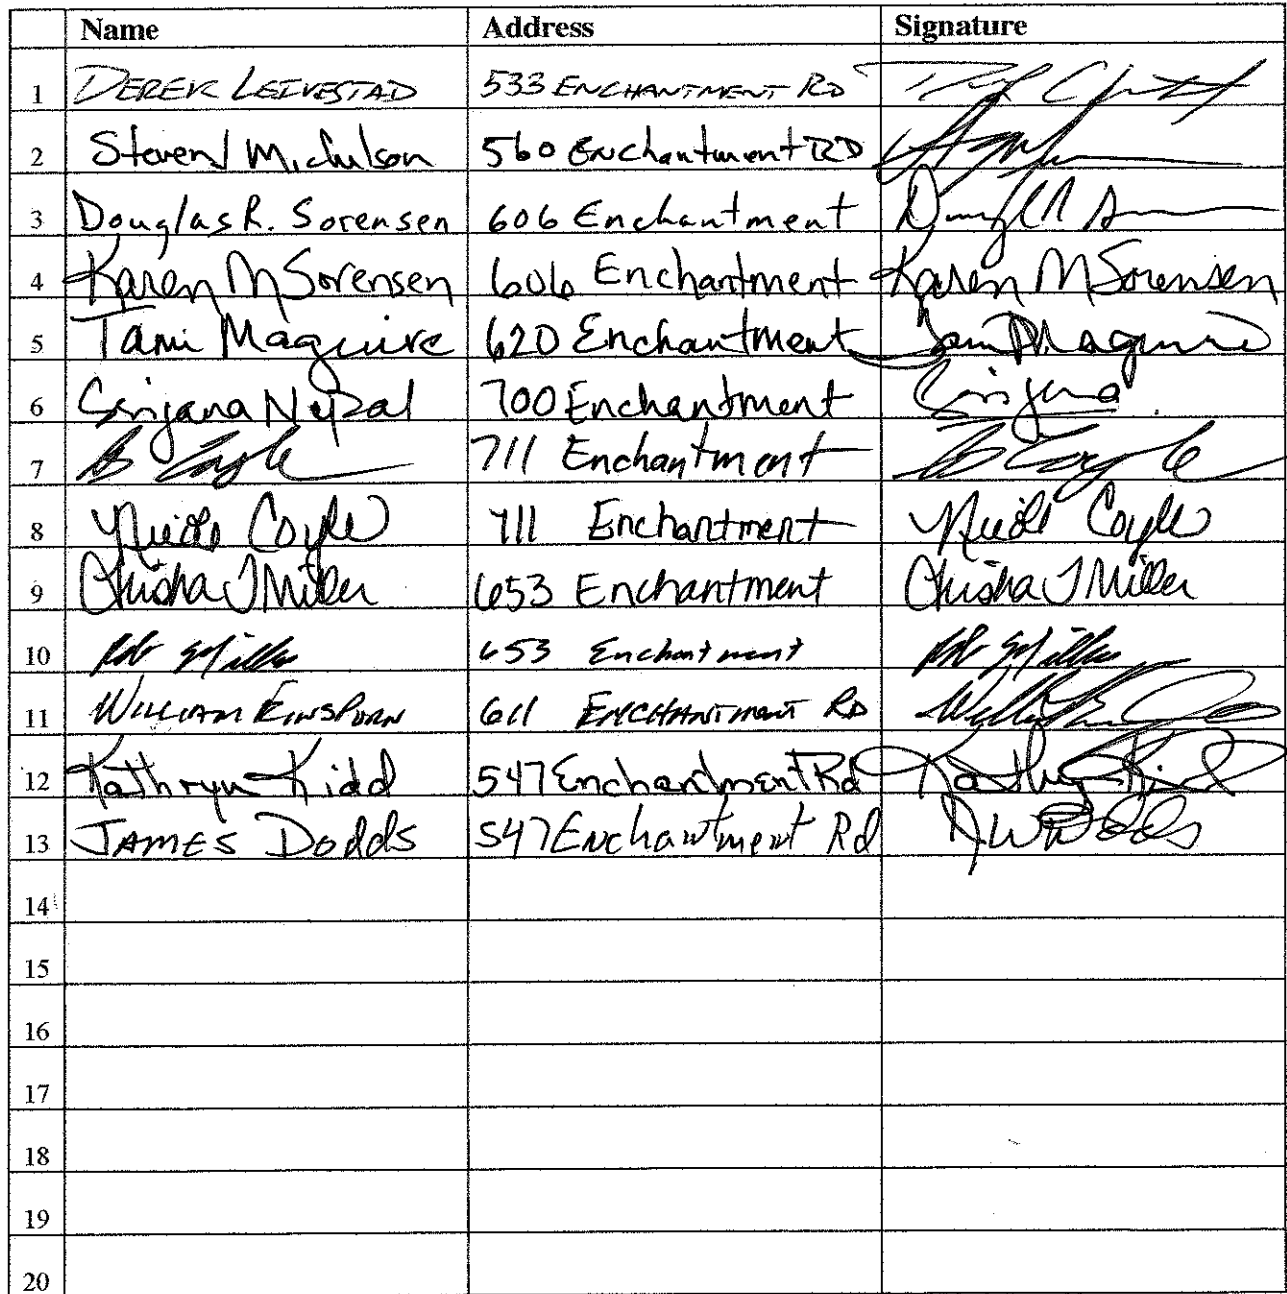 Name Address Signature
1 DEREK LEIVESTAD 533 ENCHANTMENT RD
2 Steven Michelson 560 Enchantment RD
3 Douglas R. Sorensen 606 Enchantment
4 Karen M Sorensen 606 Enchantment Karen M Sorensen
5 Tami Maguire 620 Enchantment Tami Maguire
6 Sirijana Nepal 700 Enchantment Sirijana
7 B Coyle 711 Enchantment B Coyle
8 Nicole Coyle 711 Enchantment Nicole Coyle
9 J Miller 653 Enchantment J Miller
10 Rob Miller 653 Enchantment Rob Miller
11 WILLIAM EINSPORN 611 ENCHANTMENT RD
12 Kathryn Kidd 547 Enchantment Rd Kathryn Kidd
13 JAMES Dodds 547 Enchantment Rd JW Dodds
14
15
16
17
18
19
20